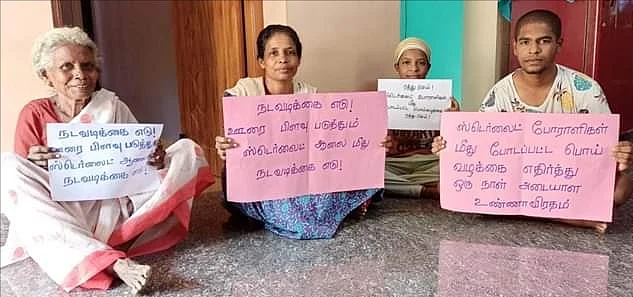 நடவடிக்கை எடு!
ஊரை பிளவு படுத்தும்
ஸ்டெர்லைட் ஆலை
நடவடிக்கை எடு!
நடவடிக்கை எடு!
ஊரை பிளவு படுத்தும்
ஸ்டெர்லைட் ஆலை மீது
நடவடிக்கை எடு!
ரத்து செய்!
ஸ்டெர்லைட் போராளிகள்
மீது
ரத்து செய்!
ஸ்டெர்லைட் போராளிகள்
மீது போடப்பட்ட பொய்
வழக்கை எதிர்த்து
ஒரு நாள் அடையாள
உண்ணாவிரதம்